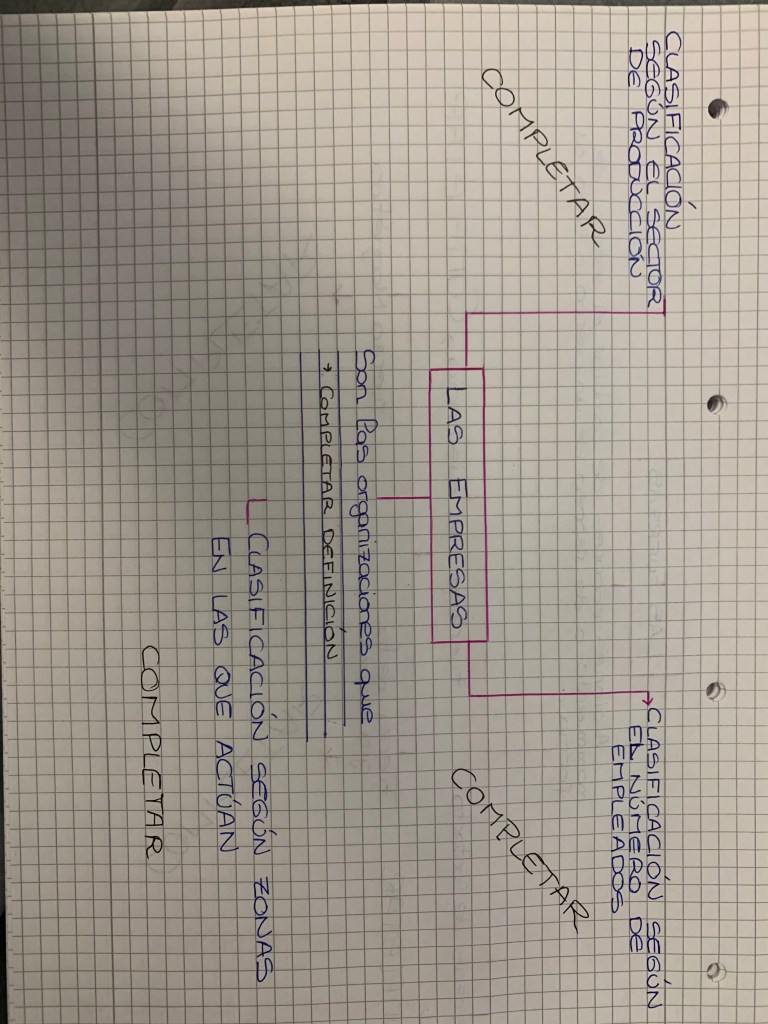 CLASIFICACIÓN
SEGÚN EL SECTOR
DE PRODUCCIÓN
COMPLETAR
CLASIFICACIÓN SEGÚN
EL NÚMERO DE
EMPLEADOS
COMPLETAR
LAS EMPRESAS
Son las organizaciones que
→ COMPLETAR DEFINICIÓN
CLASIFICACIÓN SEGÚN ZONAS
EN LAS QUE ACTÚAN
COMPLETAR